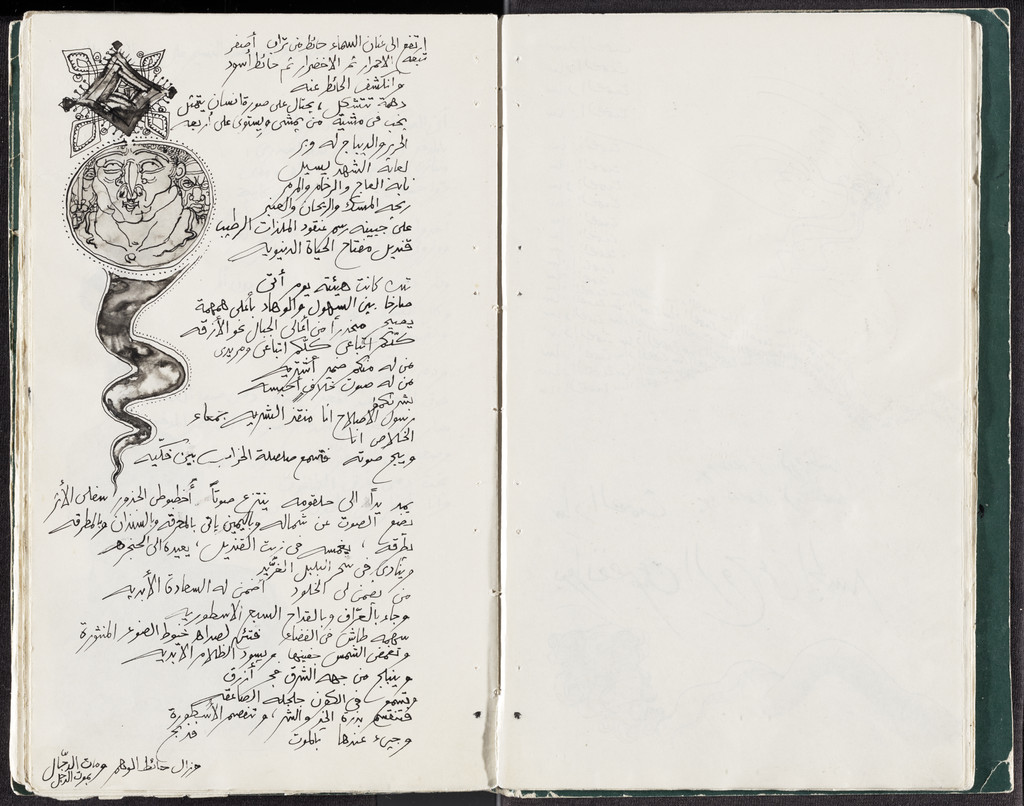 ارتفع الى عنان السماء حائط من تراب أصفر
تبعه الاحمرار ثم الاخضرار ثم حائط أسود
وانكشف الحائط عنه
تتشكل ، يحتال على صورة انسان يتمثل
يخب في مشيته من يمشي ويستوي على أربعه
الحرير والديباج له وبر
لعابه الشهد يسيل
نابه العاج والرخام والمرمر
ريحه المسك والريحان والعنبر
على جبينه رسم عنقود الملذات الرطيب
قنديل مفتاح الحياة الدنيويه
تلك كانت هيئته يوم أتى
صارخا بين السهول والوهاد بأعلى همهمة
يصيح منحدرا من أعالي الجبال نحو الأزقه
كلكم اتباعي كلكم اتباعي ومريدي
من له منكم ضمير أشتريه
من له صوت خلاف أحبسه
رسول الاصلاح انا منقذ البشريه جمعاء
الخلاص انا
ويبح صوته فتسمع صلصلة الخراب بين فكيه
يمد يداً الى حلقومه ينتزع صوتاً أخطبوطي الجذور سفلس الأثر
يضع الصوت عن شماله وباليمين يأتي بالمحرقه وبالسندان وبالمطرقه
يطرقه ، يغمسه في زيت القنديل ، يعيده الى الحنجره
وينادي في البلبل الغرّيد
من يضمن لي الخلود أضمن له السعادة الأبديه
وجاء بالعرّاف وبالقداح السبع الاسطوريه
سهمه طاش في الفضاء خيوط الضوء المنثورة
وتغمض الشمس جفنيها ويسود الظلام الابديه
وينبلج من جهة الشرق أزرق
وتسمع في الكون جلجلة الصاعقه
فتنقسم بذرة الخير والشر ، وتنفصم الأسطورة
وجيء عندها بالموت فذبح
وزال حائط الوهم ومات الدجّال
بموت الدجل